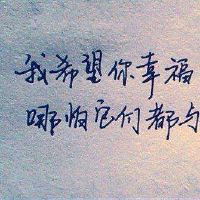 我希望你幸福
哪怕它们都与